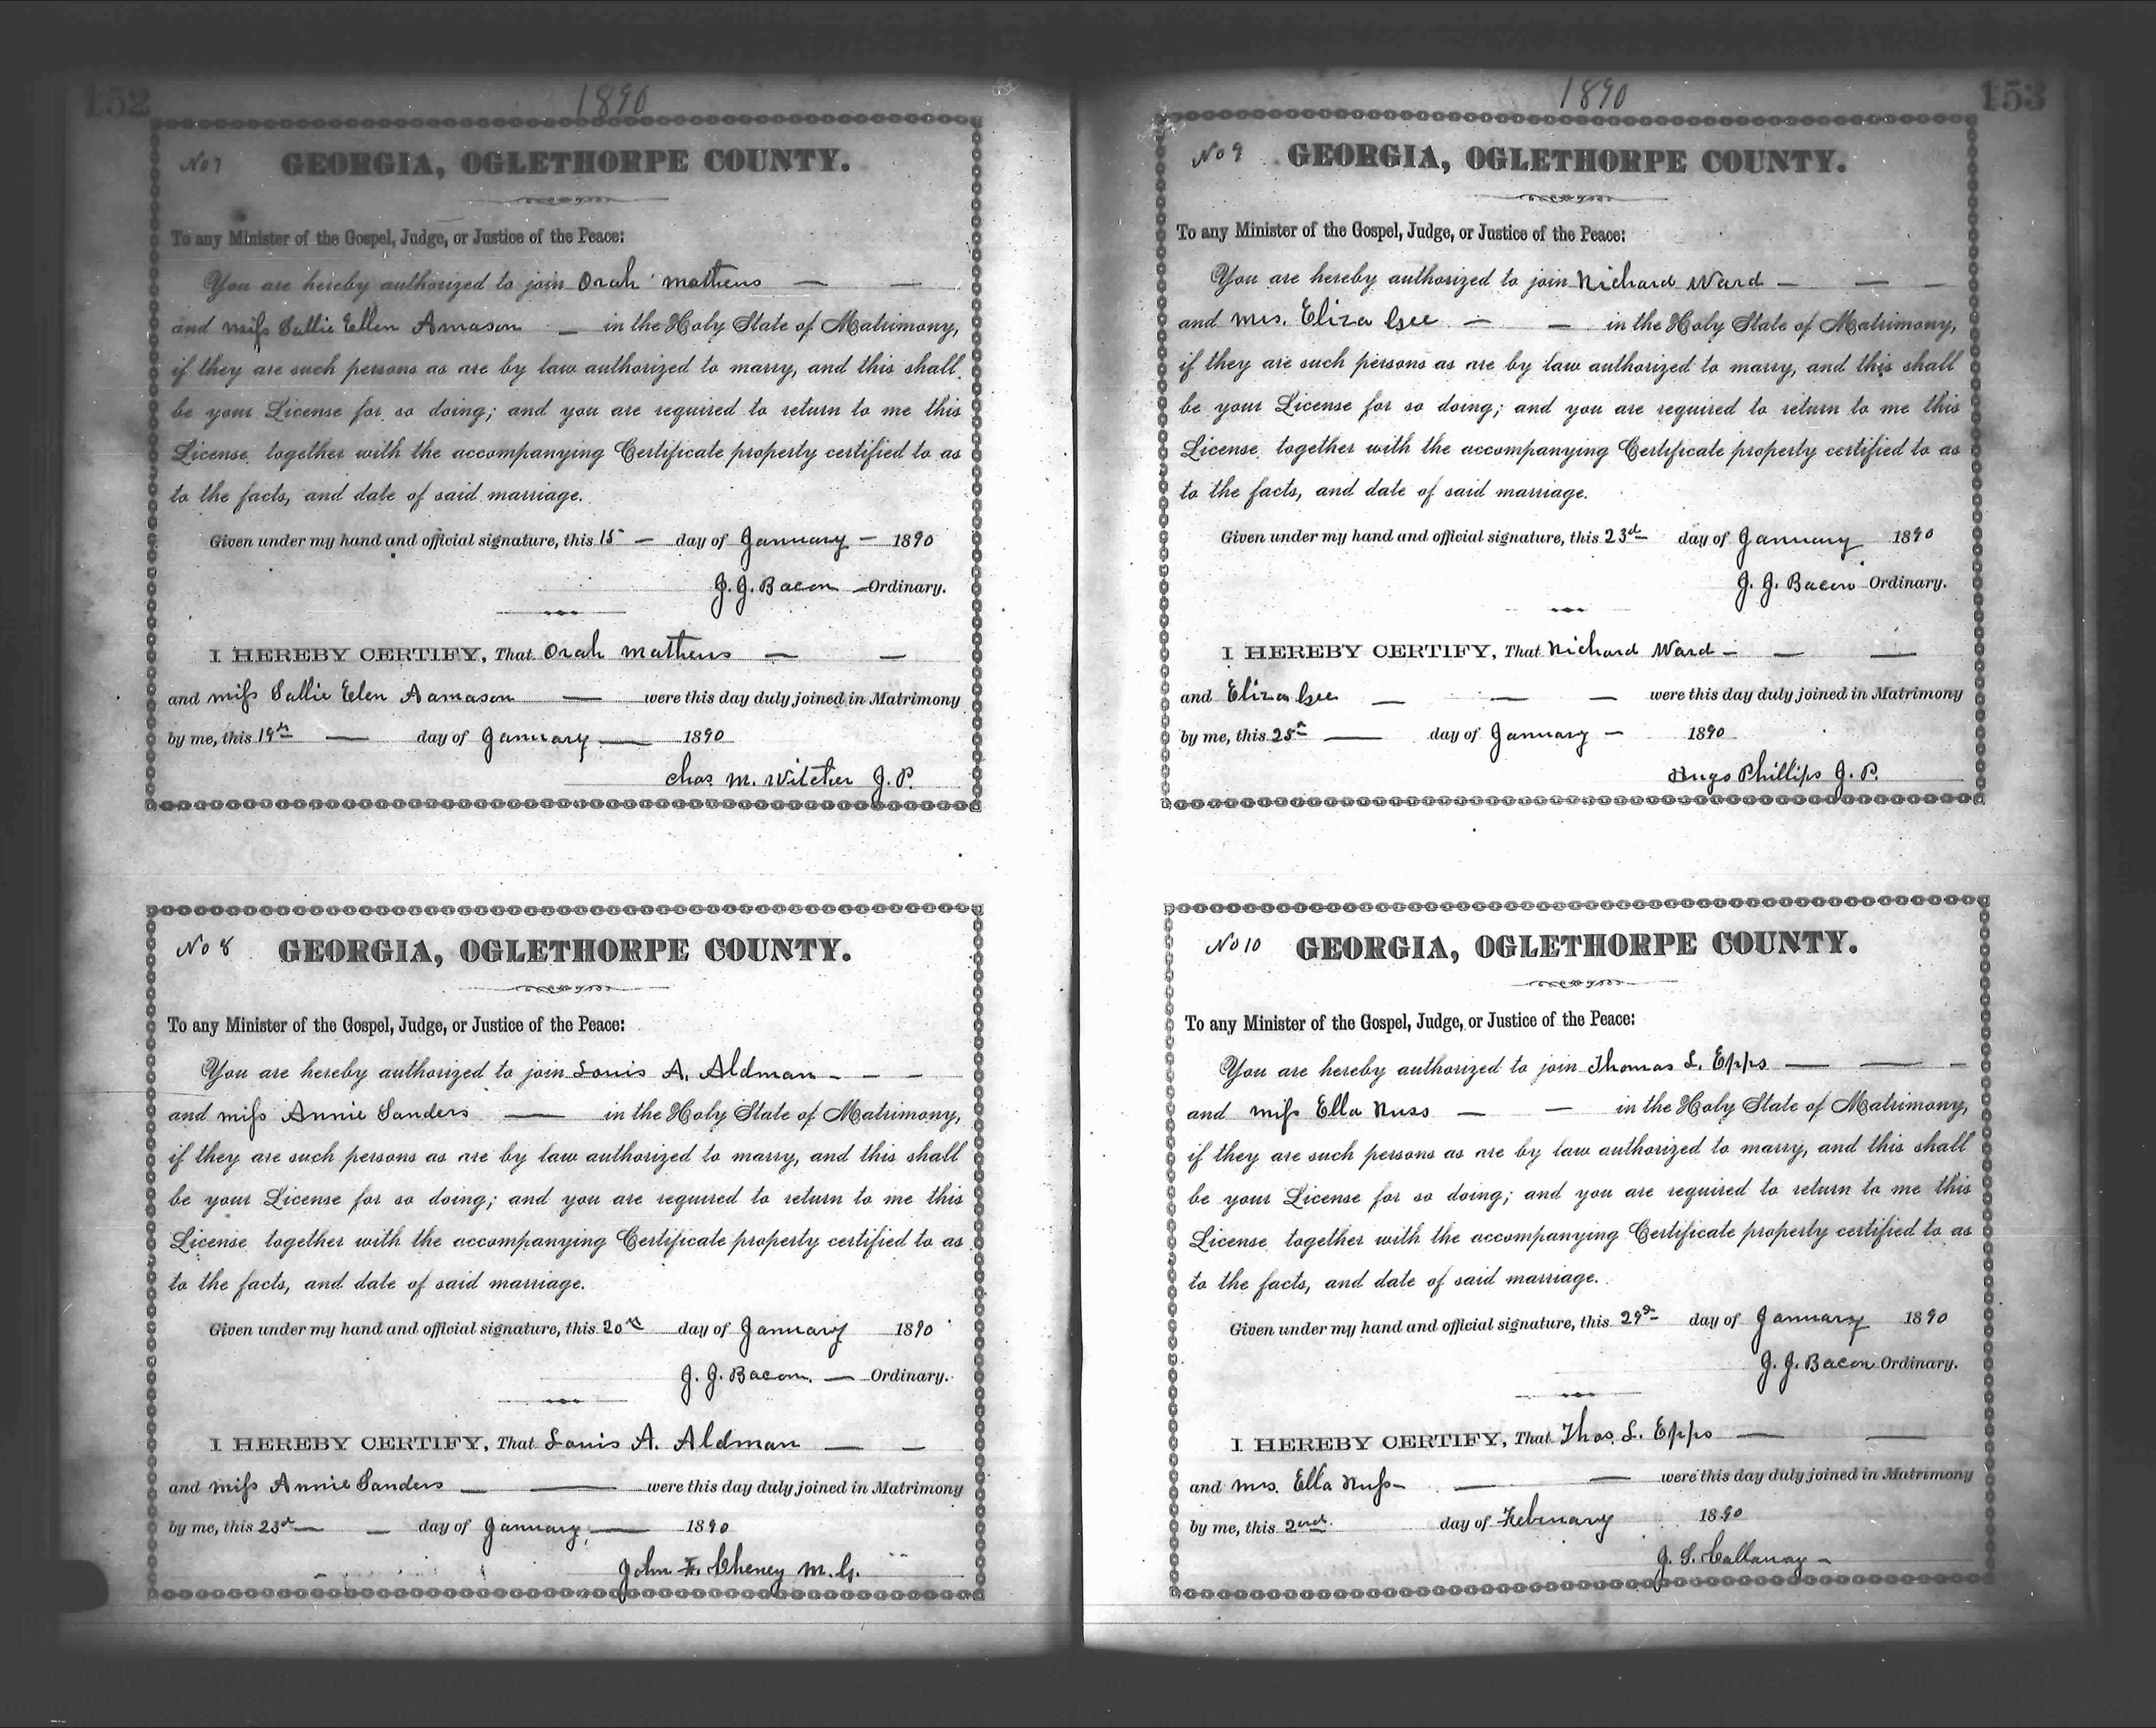 152
1890
No 7 GEORGIA, OGLETHORPE COUNTY.
To any Minister of the Gospel, Judge, or Justice of the Peace:
You are hereby authorized to join Orah Mathews
and miss Sallie Ellen Amason in the Holy State of Matrimony,
if they are such persons as are by law authorized to marry, and this shall
be your License for so doing; and you are required to return to me this
License together with the accompanying Certificate property certified to as
to the facts, and date of said marriage.
Given under my hand and official signature, this 15 day of January 1890
J. J. Bacon Ordinary.
I HEREBY CERTIFY, That Orah Mathews
and miss Sallie Elen Aamason were this day duly joined in Matrimony
by me, this 19th day of January 1890
Chas. M. Witcher J. P.
No 8 GEORGIA, OGLETHORPE COUNTY.
To any Minister of the Gospel, Judge, or Justice of the Peace:
You are hereby authorized to join Louis A. Aldman
and miss Annie Sanders in the Holy State of Matrimony,
if they are such persons as are by law authorized to marry, and this shall
be your License for so doing; and you are required to return to me this
License together with the accompanying Certificate property certified to as
to the facts, and date of said marriage.
Given under my hand and official signature, this 20th day of January 1890
J. J. Bacon. Ordinary.
I HEREBY CERTIFY, That Louis A. Aldman
and miss Annie Sanders were this day duly joined in Matrimony
by me, this 23d day of January, 1890
John F. Cheney M. G.
153
1890
No 9 GEORGIA, OGLETHORPE COUNTY.
To any Minister of the Gospel, Judge, or Justice of the Peace:
You are hereby authorized to join Richard Ward
and mrs. Eliza Gee in the Holy State of Matrimony,
if they are such persons as are by law authorized to marry, and this shall
be your License for so doing; and you are required to return to me this
License together with the accompanying Certificate property certified to as
to the facts, and date of said marriage.
Given under my hand and official signature, this 23d day of January 1890
J. J. Bacon Ordinary.
I HEREBY CERTIFY, That Richard Ward
and Eliza Gee were this day duly joined in Matrimony
by me, this 25th day of January 1890
Hugo Phillips J. P.
No 10 GEORGIA, OGLETHORPE COUNTY.
To any Minister of the Gospel, Judge, or Justice of the Peace:
You are hereby authorized to join Thomas L. Epps
and miss Ella Russ in the Holy State of Matrimony,
if they are such persons as are by law authorized to marry, and this shall
be your License for so doing; and you are required to return to me this
License together with the accompanying Certificate property certified to as
to the facts, and date of said marriage.
Given under my hand and official signature, this 29th day of January 1890
J. J. Bacon Ordinary.
I HEREBY CERTIFY, That Thos. L. Epps
and mrs. Ella Russ were this day duly joined in Matrimony
by me, this 2nd. day of February 1890
J. S. Callaway